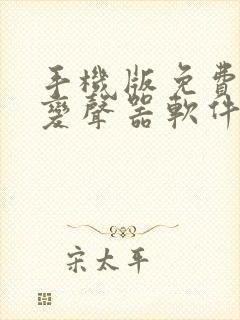 手機版免費
變聲器軟件
宋太平